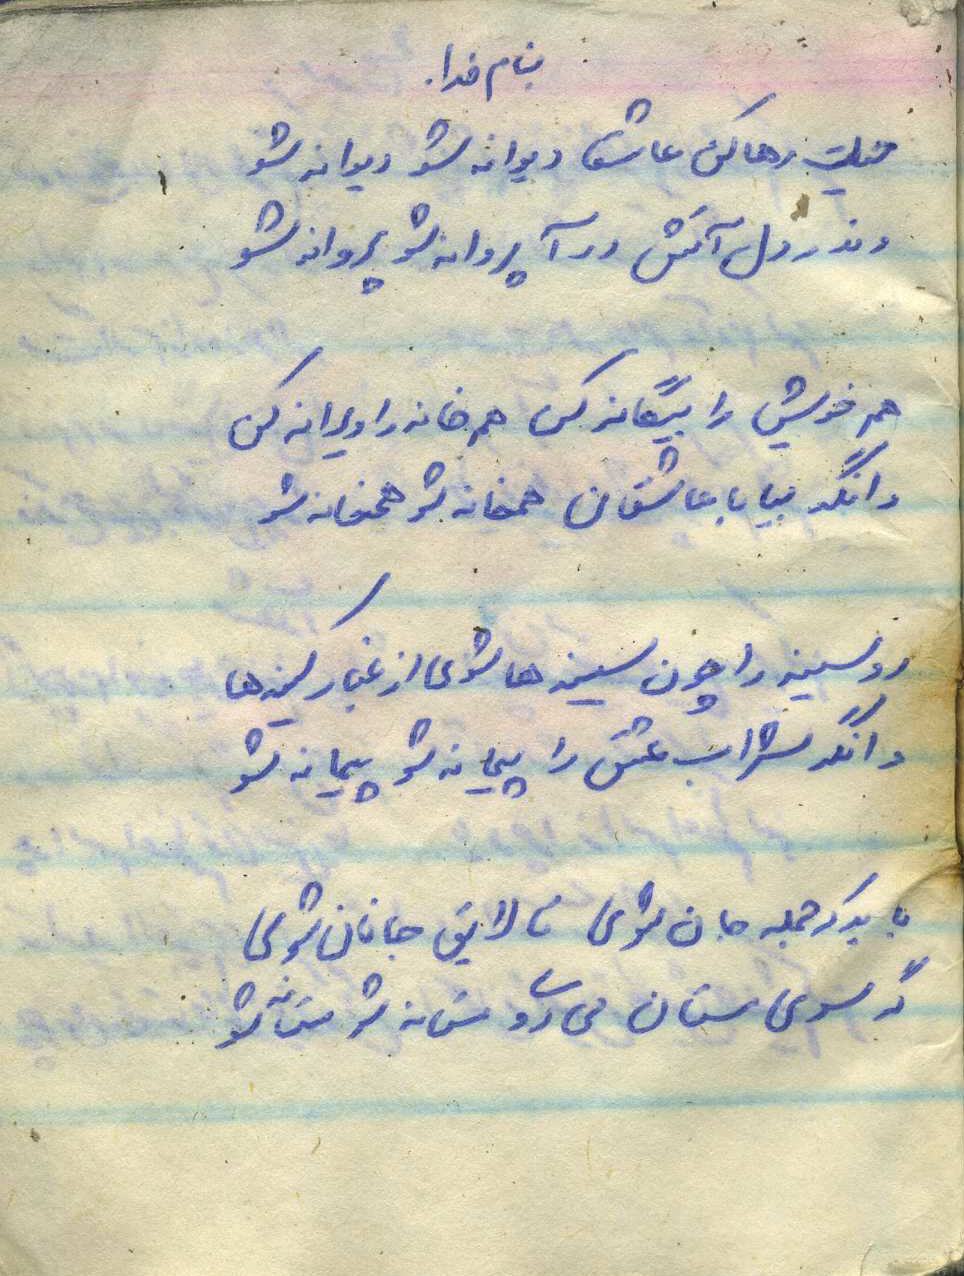 بنام خدا.
حیلت رها کن عاشقا دیوانه شو دیوانه شو
وندر دل آتش درآ پروانه شو پروانه شو
هم خویش را بیگانه کن هم خانه را ویرانه کن
وانگه بیا با عاشقان همخانه شو همخانه شو
رو سینه را چون سینه ها شوی از غبار کینه ها
وانگه شراب عشق را پیمانه شو پیمانه شو
باید که جمله جان شوی تا لایق جانان شوی
گر سوی مستان می روی مستانه شو مستانه شو